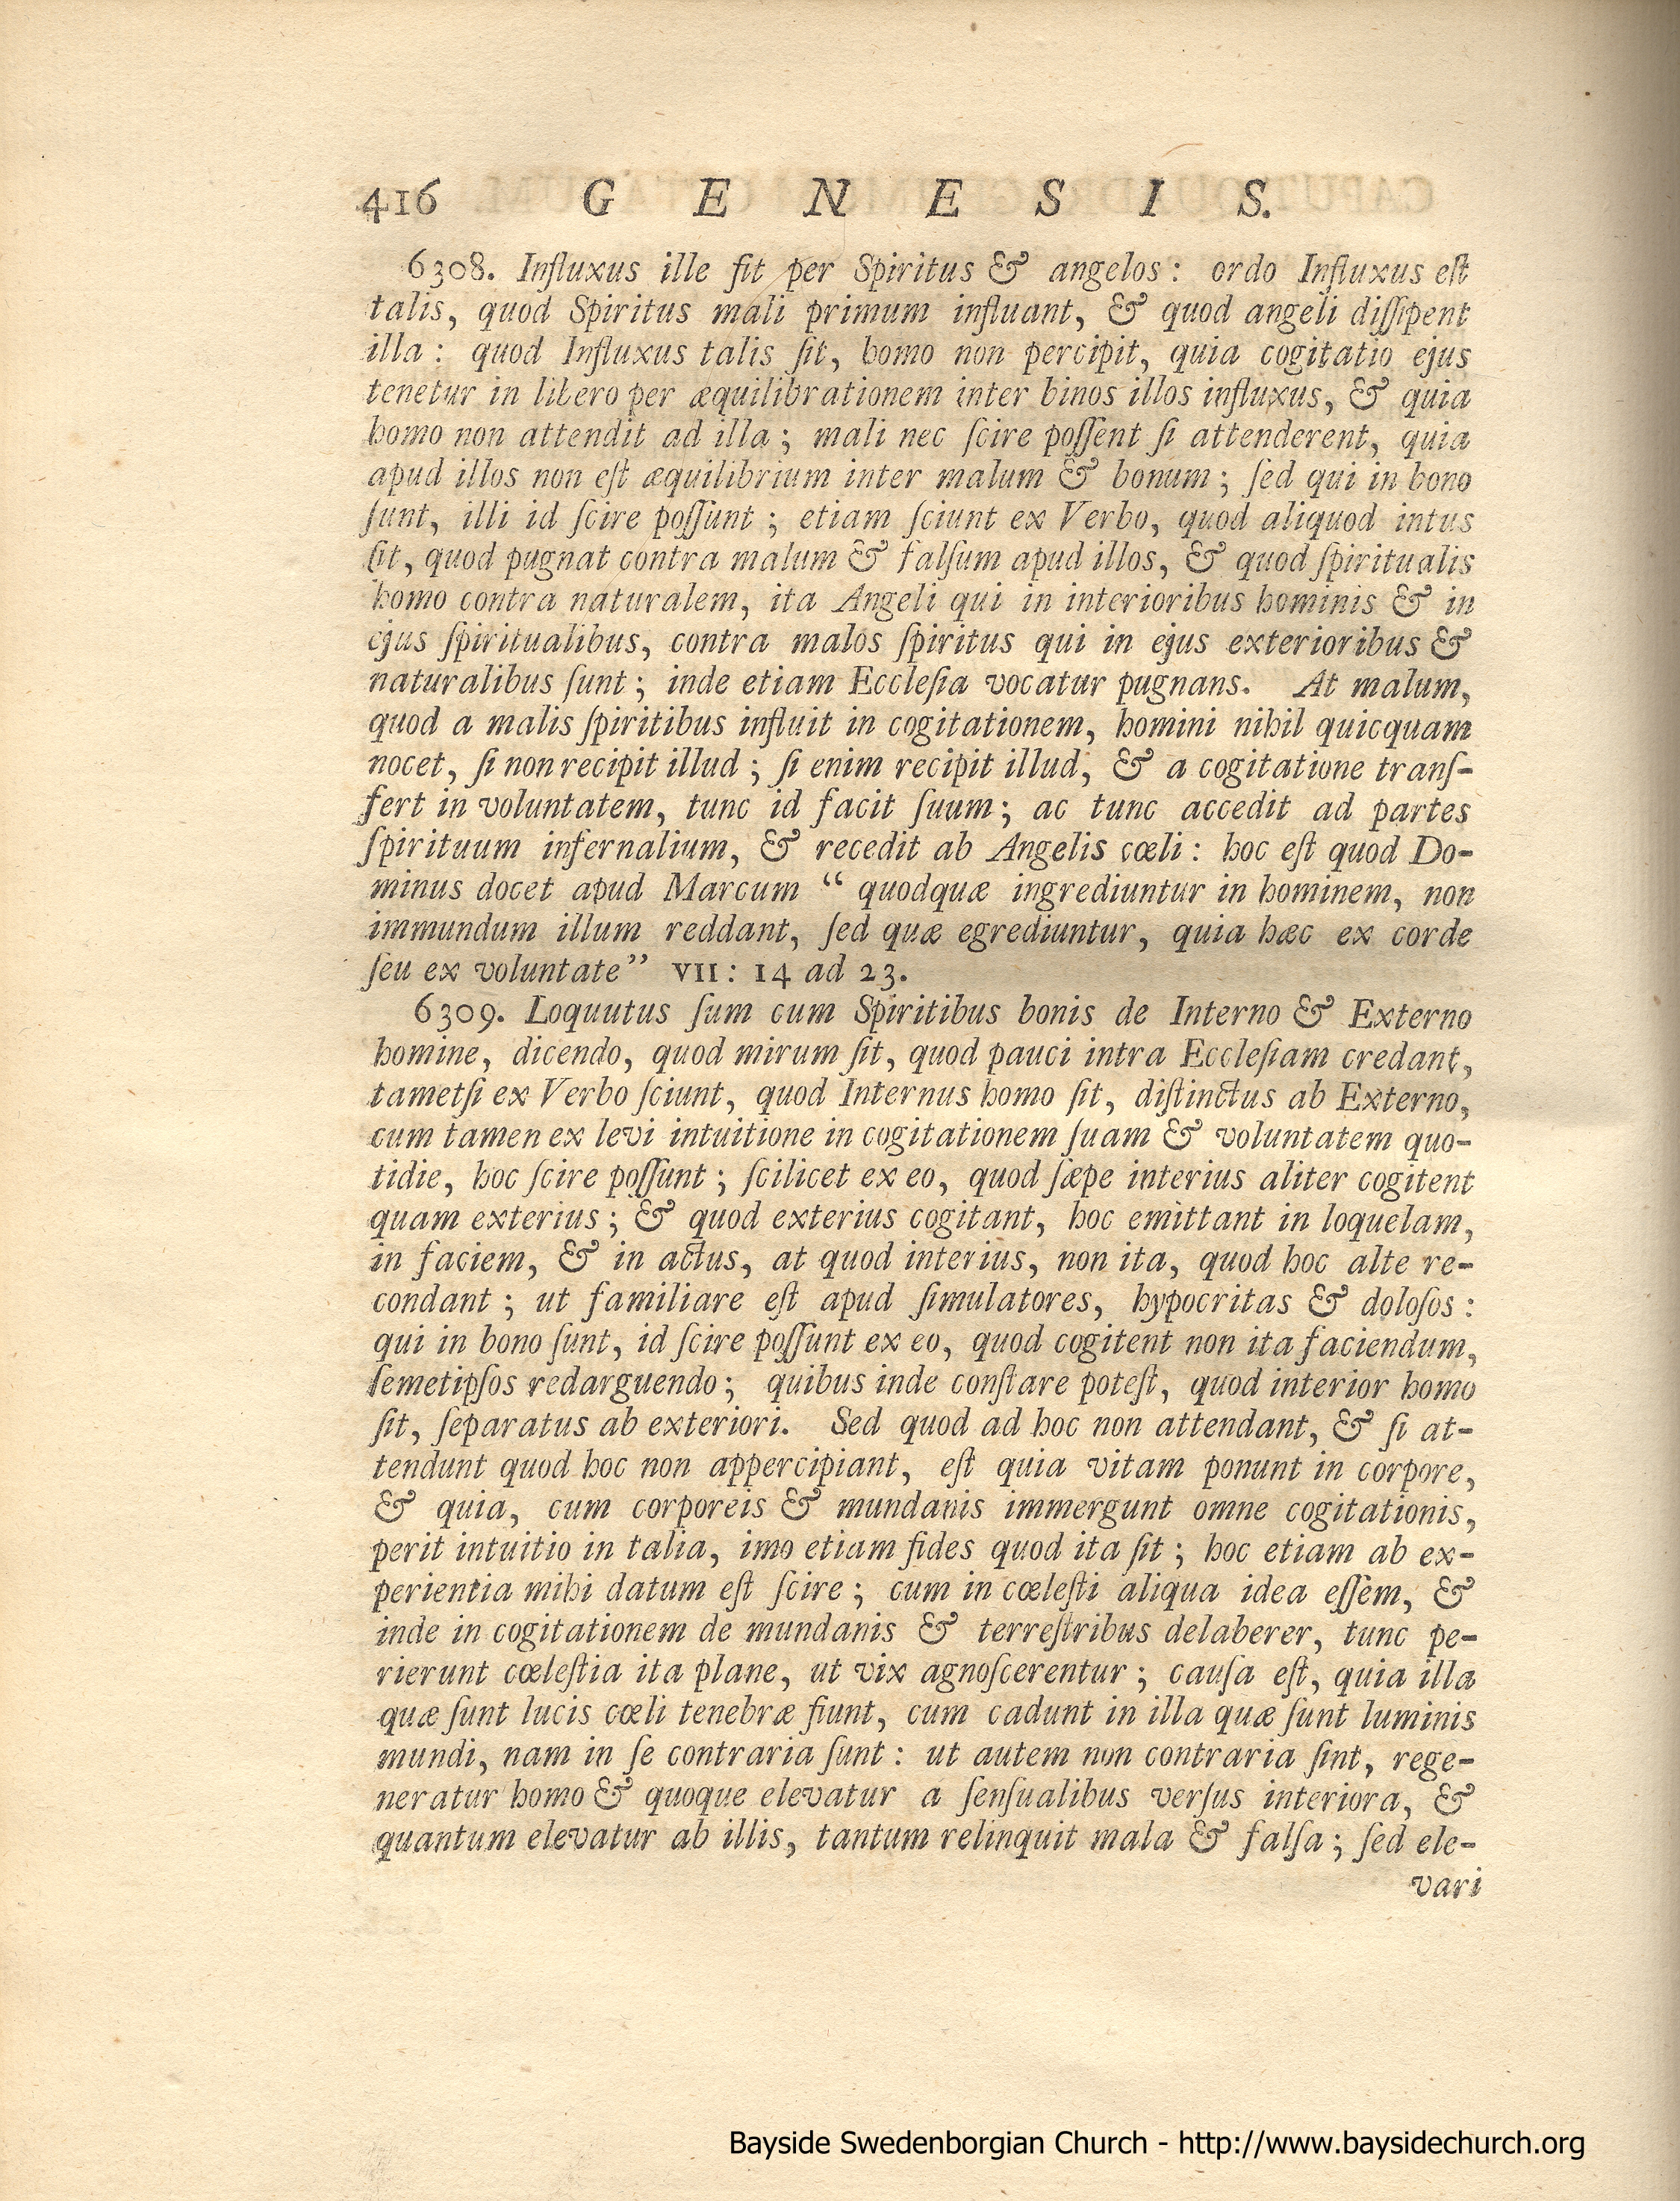 416 G E N E S I S.
6308. Influxus ille fit per Spiritus & angelos: ordo Influxus eſt
talis, quod Spiritus mali primum influant, & quod angeli diſſipent
illa: quod Influxus talis ſit, homo non percipit, quia cogitatio ejus
tenetur in libero per æquilibrationem inter binos illos influxus, & quia
homo non attendit ad illa; mali nec ſcire poſſent ſi attenderent, quia
apud illos non eſt æquilibrium inter malum & bonum; ſed qui in bono
ſunt, illi id ſcire poſſunt; etiam ſciunt ex Verbo, quod aliquod intus
ſit, quod pugnat contra malum & falſum apud illos, & quod ſpiritualis
homo contra naturalem, ita Angeli qui in interioribus hominis & in
ejus ſpiritualibus, contra malos ſpiritus qui in ejus exterioribus &
naturalibus ſunt; inde etiam Eccleſia vocatur pugnans. At malum,
quod a malis ſpiritibus influit in cogitationem, homini nihil quicquam
nocet, ſi non recipit illud; ſi enim recipit illud, & a cogitatione transſ-
fert in voluntatem, tunc id facit ſuum; ac tunc accedit ad partes
ſpirituum infernalium, & recedit ab Angelis cœli: hoc eſt quod Do-
minus docet apud Marcum “ quodquæ ingrediuntur in hominem, non
immundum illum reddant, ſed quæ egrediuntur, quia hæc ex corde
ſeu ex voluntate” VII: 14 ad 23.
6309. Loquutus ſum cum Spiritibus bonis de Interno & Externo
homine, dicendo, quod mirum ſit, quod pauci intra Eccleſiam credant,
tametſi ex Verbo ſciunt, quod Internus homo ſit, diſtinctus ab Externo,
cum tamen ex levi intuitione in cogitationem ſuam & voluntatem quo-
tidie, hoc ſcire poſſunt; ſcilicet ex eo, quod ſæpe interius aliter cogitent
quam exterius; & quod exterius cogitant, hoc emittant in loquelam,
in faciem, & in actus, at quod interius, non ita, quod hoc alte re-
condant; ut familiare eſt apud ſimulatores, hypocritas & doloſos:
qui in bono ſunt, id ſcire poſſunt ex eo, quod cogitent non ita faciendum,
ſemetipſos redarguendo; quibus inde conſtare poteſt, quod interior homo
ſit, ſeparatus ab exteriori. Sed quod ad hoc non attendant, & ſi at-
tendunt quod hoc non appercipiant, eſt quia vitam ponunt in corpore,
& quia, cum corporeis & mundanis immergunt omne cogitationis,
perit intuitio in talia, imo etiam fides quod ita ſit; hoc etiam ab ex-
perientia mihi datum eſt ſcire; cum in cœleſti aliqua idea eſſem, &
inde in cogitationem de mundanis & terreſtribus delaberer, tunc pe-
rierunt cœleſtia ita plane, ut vix agnoſcerentur; cauſa eſt, quia illa
quæ ſunt lucis cœli tenebræ fiunt, cum cadunt in illa quæ ſunt luminis
mundi, nam in ſe contraria ſunt: ut autem non contraria ſint, rege-
neratur homo & quoque elevatur a ſenſualibus verſus interiora, &
quantum elevatur ab illis, tantum relinquit mala & falſa; ſed ele-
vari
Bayside Swedenborgian Church - http://www.baysidechurch.org